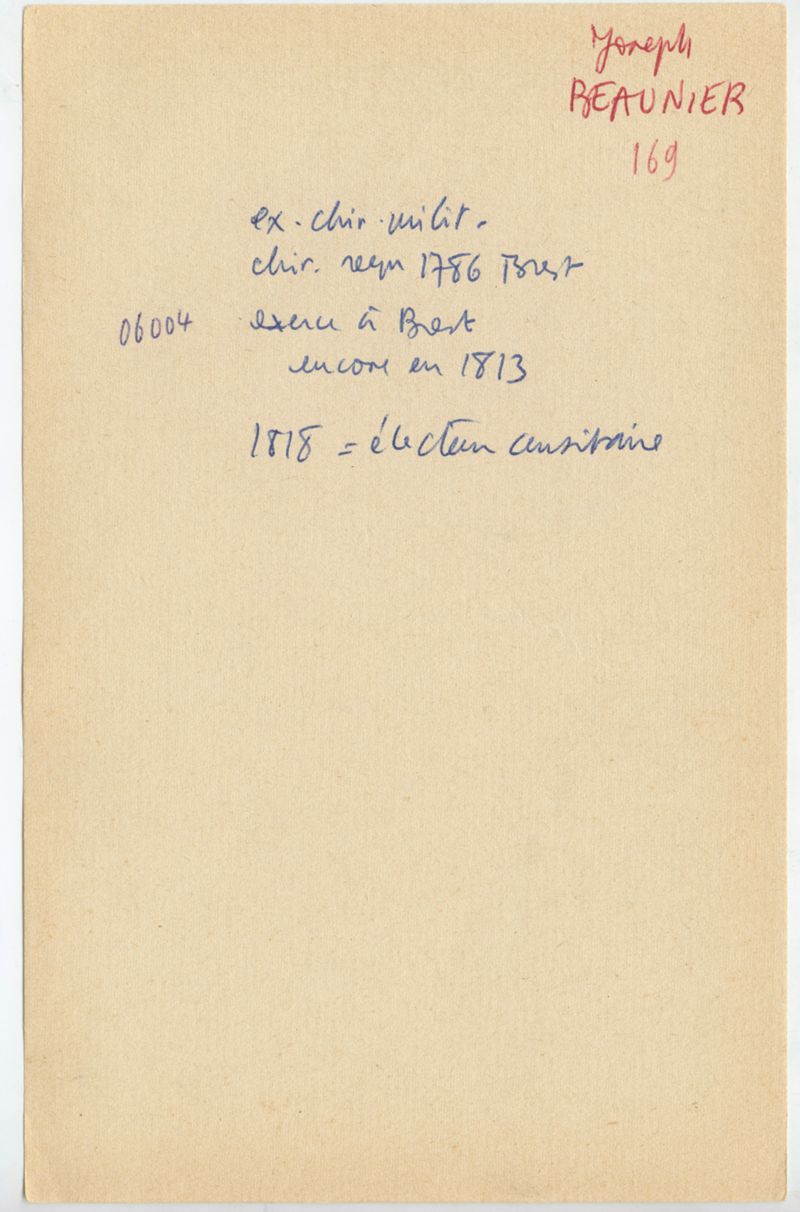 Joseph
BEAUNIER
169
ex. chir. milit.
chir. reçu 1786 Brest
06004 exerce à Brest
encore en 1813
1818 = électeur censitaire